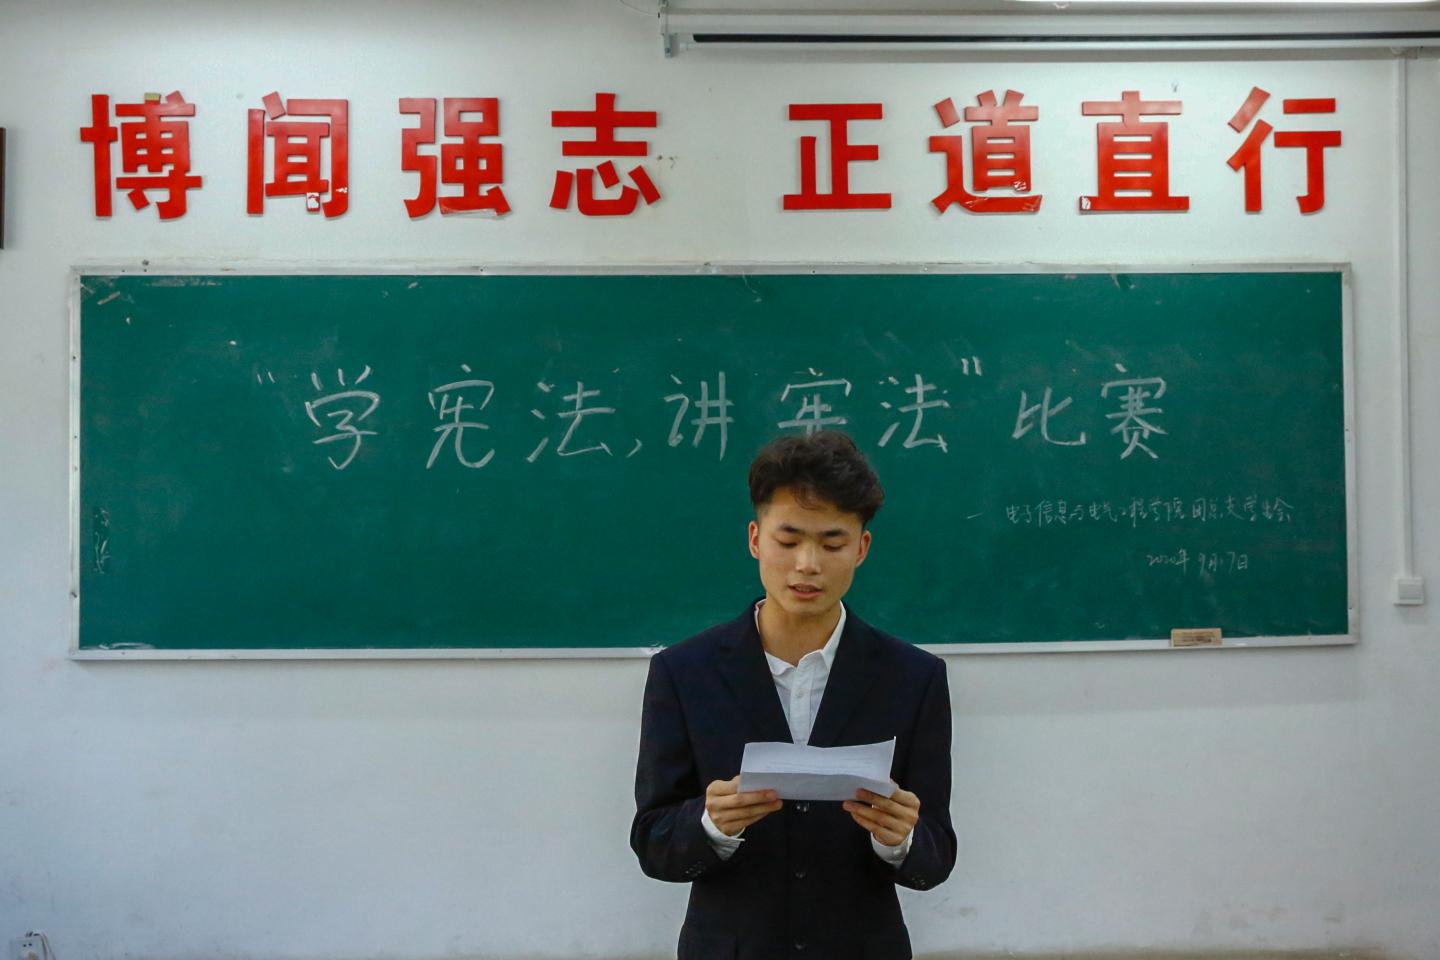 博闻强志 正道直行
“学宪法,讲宪法”比赛
— 电子信息与电气工程学院团总支学生会
2020年9月17日